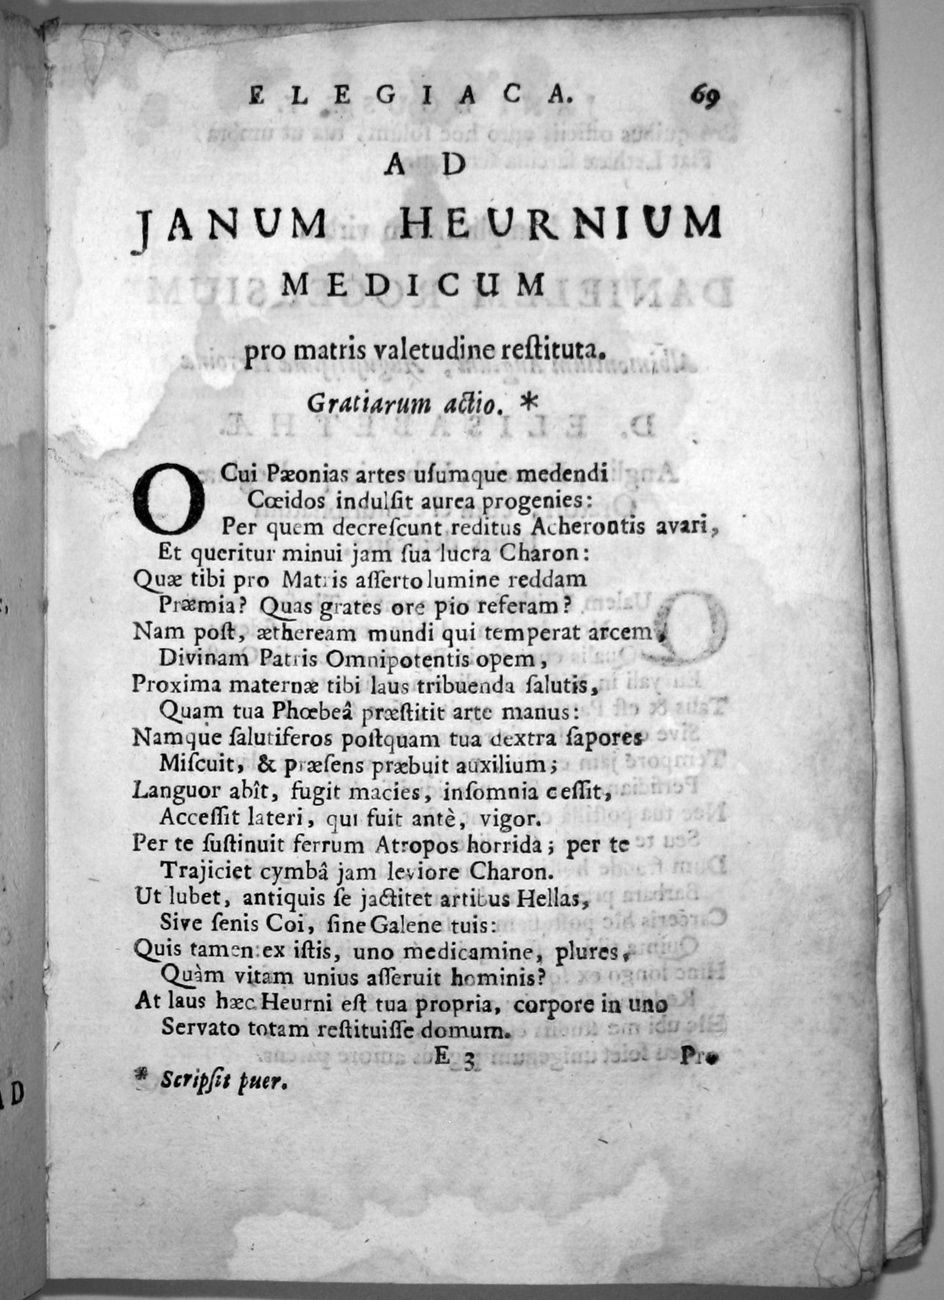 ELEGIACA. 69
AD
JANUM HEURNIUM
MEDICUM
pro matris valetudine reſtituta.
Gratiarum actio. *
O Cui Pæonias artes uſumque medendi
Cœidos indulſit aurea progenies:
Per quem decreſcunt reditus Acherontis avari,
Et queritur minui jam ſua lucra Charon:
Quæ tibi pro Matris aſſerto lumine reddam
Præmia? Quas grates ore pio referam?
Nam poſt, æthеream mundi qui temperat arcem,
Divinam Patris Omnipotentis opem,
Proxima maternæ tibi laus tribuenda ſalutis,
Quam tua Phœbeâ præſtitit arte manus:
Namque ſalutiferos poſtquam tua dextra ſapores
Miſcuit, & præſens præbuit auxilium;
Languor abît, fugit macies, inſomnia ceſſit,
Acceſſit lateri, qui fuit antè, vigor.
Per te ſuſtinuit ferrum Atropos horrida; per te
Trajiciet cymbâ jam leviore Charon.
Ut lubet, antiquis ſe jactitet artibus Hellas,
Sive ſenis Coi, ſine Galene tuis:
Quis tamen ex iſtis, uno medicamine, plures,
Quàm vitam unius aſſeruit hominis?
At laus hæc Heurni eſt tua propria, corpore in uno
Servato totam reſtituiſſe domum.
E 3 Pro
* Scripſit puer.
AD